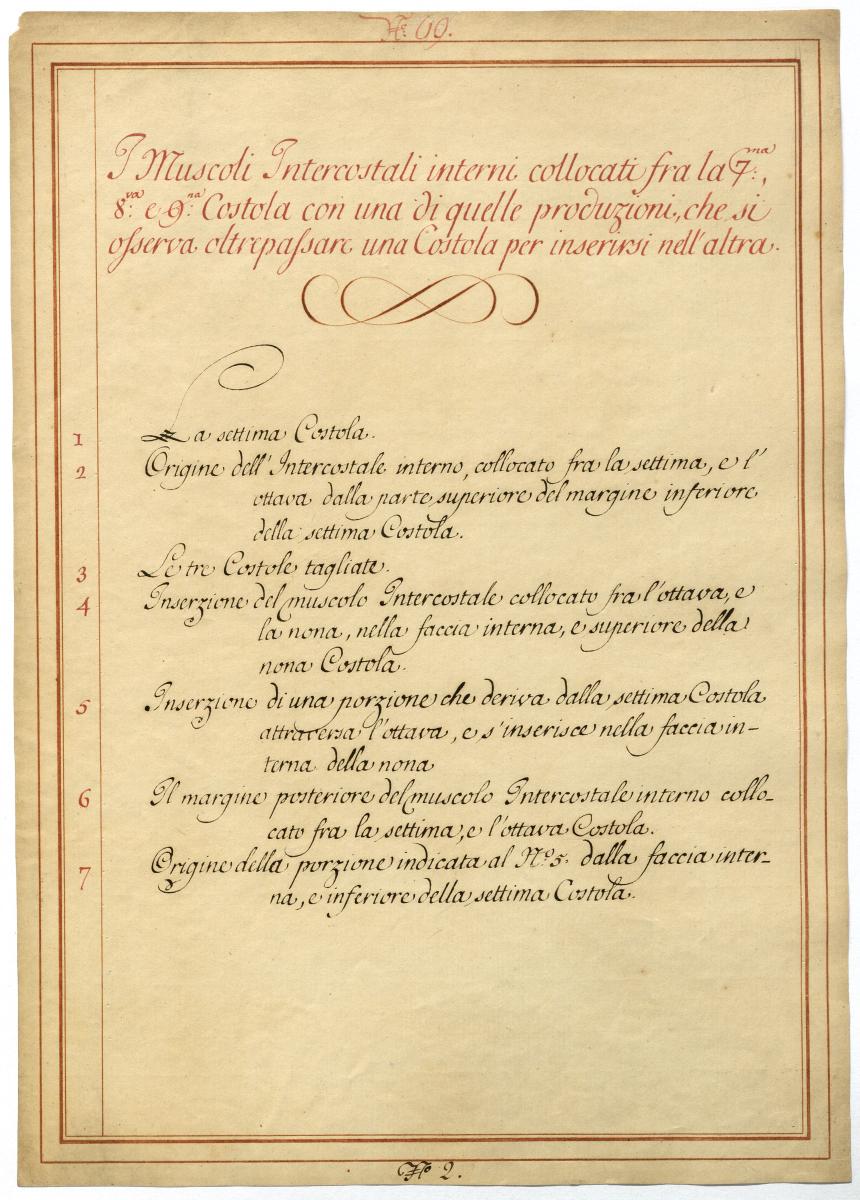 No. 69.
I Muscoli Intercostali interni collocati fra la 7.ma,
8.va e 9.na Costola con una di quelle produzioni, che si
osserva oltrepassare una Costola per inserirsi nell'altra.
1 La settima Costola.
2 Origine dell'Intercostale interno, collocato fra la settima, e l'
ottava dalla parte superiore del margine inferiore
della settima Costola.
3 Le tre Costole tagliate.
4 Inserzione del muscolo Intercostale collocato fra l'ottava, e
la nona, nella faccia interna, e superiore della
nona Costola.
5 Inserzione di una porzione che deriva dalla settima Costola
attraversa l'ottava, e s'inserisce nella faccia in-
terna della nona
6 Il margine posteriore del muscolo Intercostale interno collo-
cato fra la settima, e l'ottava Costola.
7 Origine della porzione indicata al No. 5. dalla faccia inter-
na, e inferiore della settima Costola.
No 2.